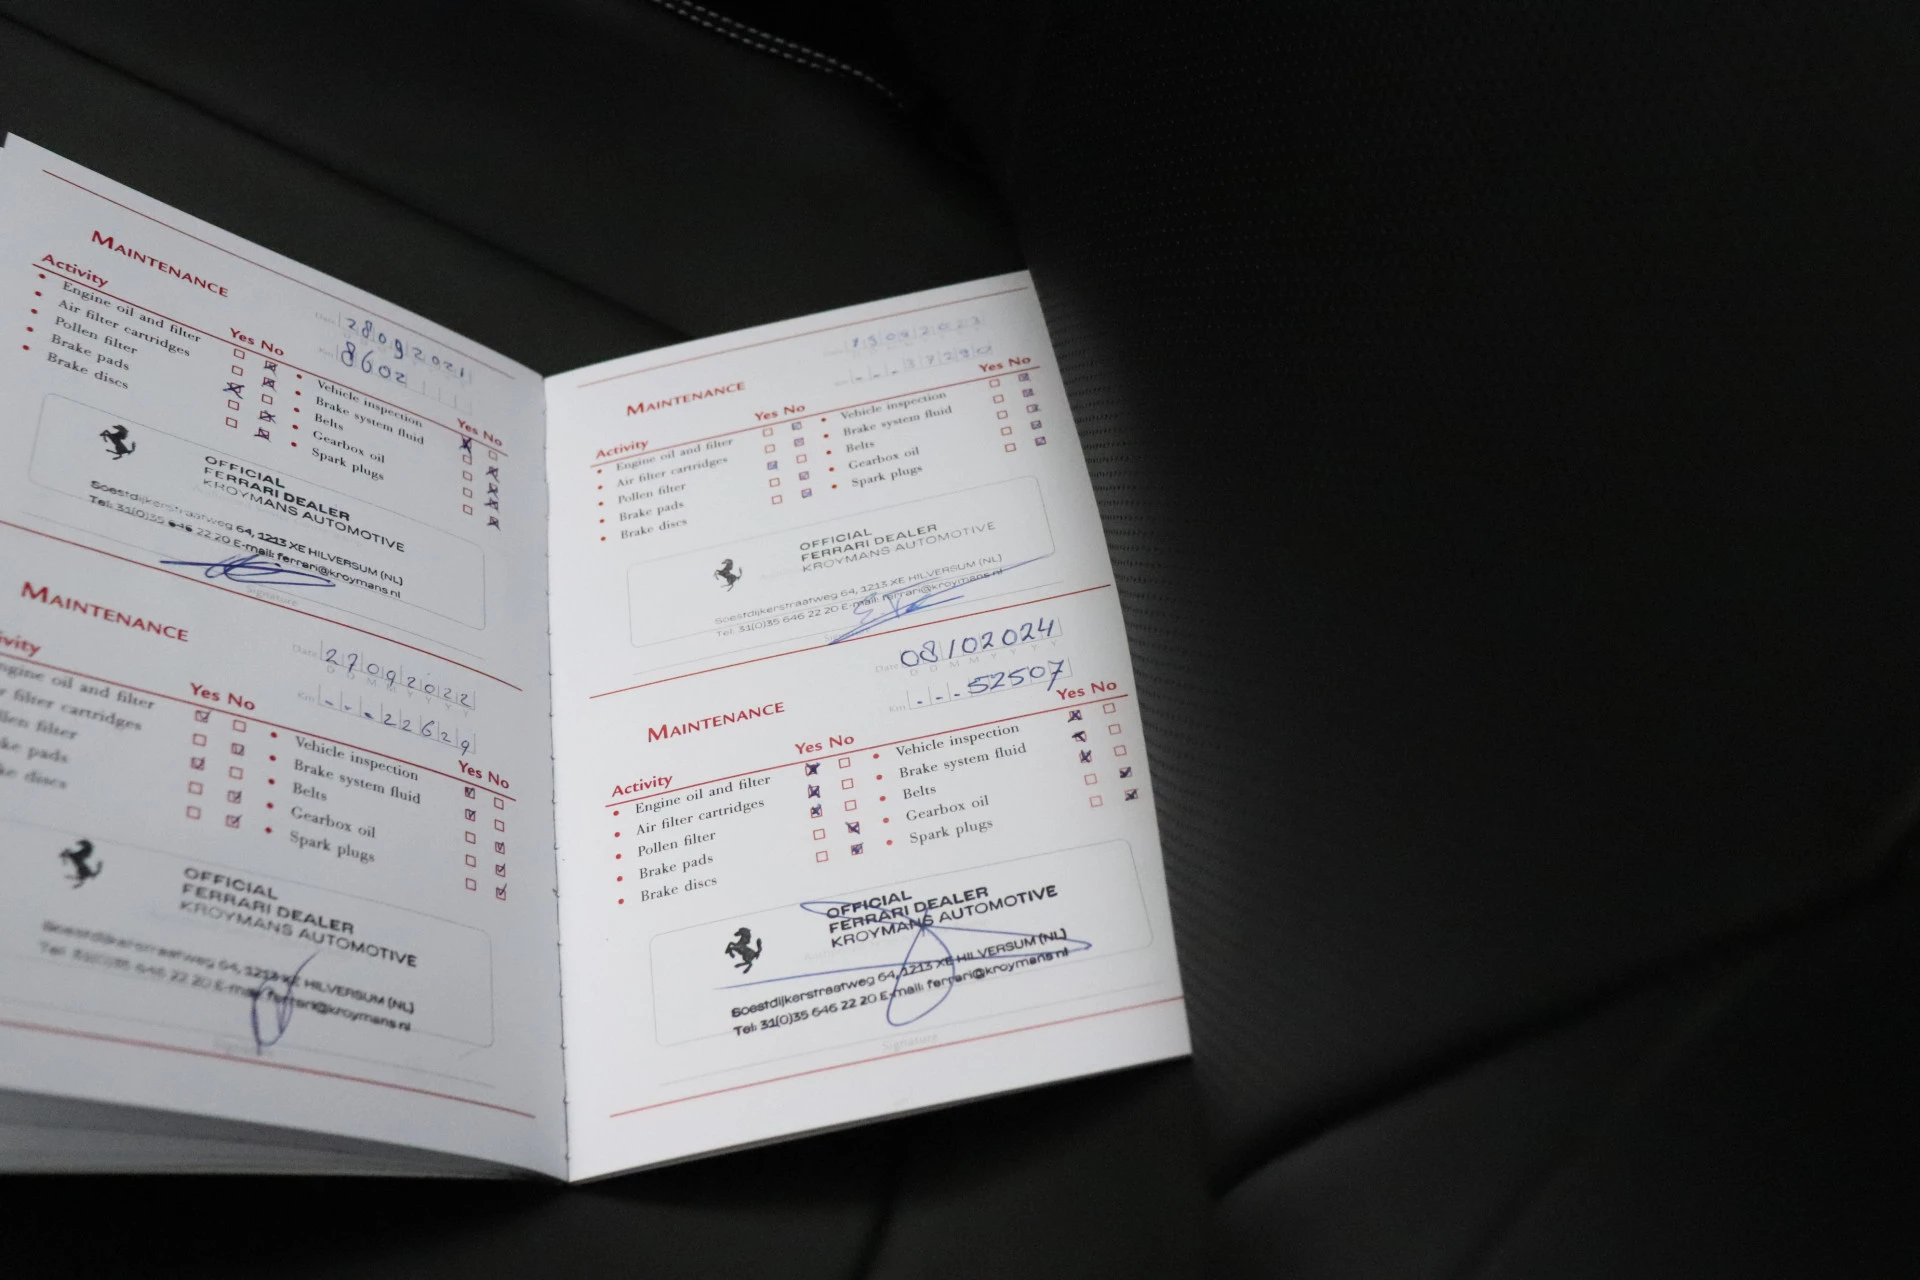 MAINTENANCE
Date 28092021
Km 8602
Activity Yes No
Engine oil and filter
Air filter cartridges
Pollen filter
Brake pads
Brake discs
Yes No
Vehicle inspection
Brake system fluid
Belts
Gearbox oil
Spark plugs
OFFICIAL
FERRARI DEALER
KROYMANS AUTOMOTIVE
Soestdijkerstraatweg 64, 1213 XE HILVERSUM (NL)
Tel: 31(0)35 646 22 20 E-mail: ferrari@kroymans.nl
Signature
MAINTENANCE
Date 27092022
D D M M Y Y Y Y
Km - - - 22629
ivity Yes No
ngine oil and filter
r filter cartridges
llen filter
ke pads
ke discs
Yes No
Vehicle inspection
Brake system fluid
Belts
Gearbox oil
Spark plugs
OFFICIAL
FERRARI DEALER
KROYMANS AUTOMOTIVE
Soestdijkerstraatweg 64, 1213 XE HILVERSUM (NL)
Tel: 31(0)35 646 22 20 E-mail: ferrari@kroymans.nl
Signature
MAINTENANCE
Activity Yes No
Engine oil and filter
Air filter cartridges
Pollen filter
Brake pads
Brake discs
Yes No
Vehicle inspection
Brake system fluid
Belts
Gearbox oil
Spark plugs
OFFICIAL
FERRARI DEALER
KROYMANS AUTOMOTIVE
Soestdijkerstraatweg 64, 1213 XE HILVERSUM (NL)
Tel: 31(0)35 646 22 20 E-mail: ferrari@kroymans.nl
MAINTENANCE
Date 08/02024
D D M M Y Y Y Y
Km - - - 52507
Activity Yes No
Engine oil and filter
Air filter cartridges
Pollen filter
Brake pads
Brake discs
Yes No
Vehicle inspection
Brake system fluid
Belts
Gearbox oil
Spark plugs
OFFICIAL
FERRARI DEALER
KROYMANS AUTOMOTIVE
Soestdijkerstraatweg 64, 1213 XE HILVERSUM (NL)
Tel: 31(0)35 646 22 20 E-mail: ferrari@kroymans.nl
Signature